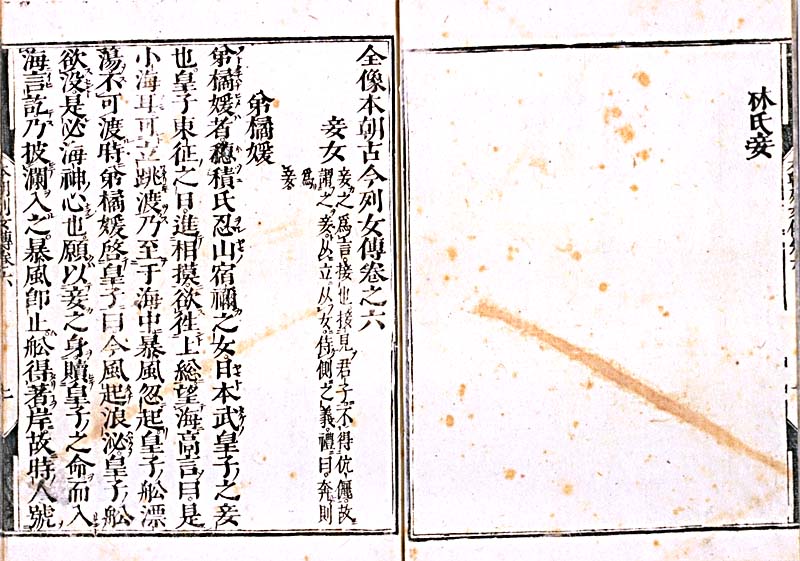 林氏妾
全像本朝古今列女傳卷之六
妾女
妾之為言接也接見君子不得伉儷故
謂之妾从立从女侍側之義禮曰奔則
為妾
弟橘媛
弟橘媛者穗積氏忍山宿禰之女日本武皇子之妾
也皇子東征之日進相摸欲徃上総望海高言曰是
小海耳可立跳渡乃至于海中暴風忽起皇子舩漂
蕩不可渡時弟橘媛啓皇子曰今風起浪泌皇子舩
欲没是必海神心也願以妾之身贖皇子之命而入
海言訖乃披瀾入之暴風即止舩得著岸故時人號